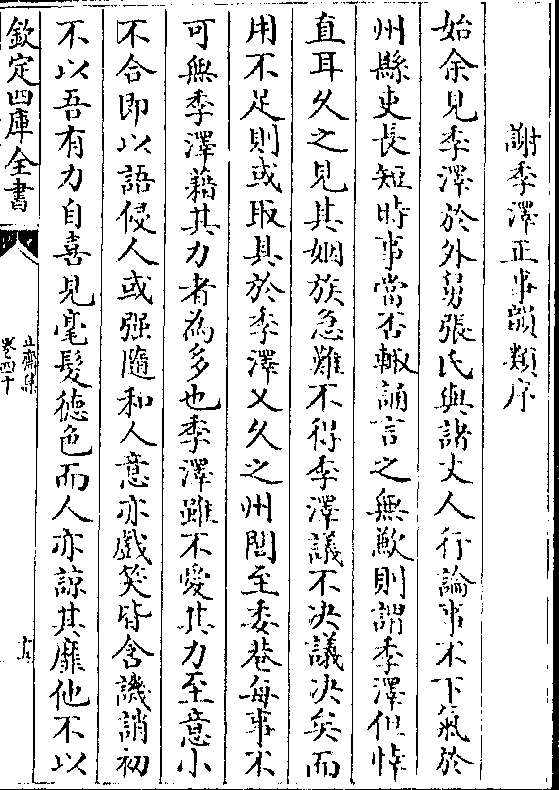 謝季澤正事韻類序
始余見季澤於外舅張氏與諸丈人行論事不下氣於
州縣吏長短時事當否輙誦言之無歉則謂季澤但悻
直耳久之見其姻族急難不得季澤議不決議決矣而
用不足則或取具於季澤又久之州閭至委巷每事不
可無季澤藉其力者為多也季澤雖不愛其力至意小
不合即以語侵人或强隨和人意亦戲笑皆含譏誚初
不以吾有力自喜見毫髮徳色而人亦諒其靡他不以
欽定四庫全書
止齋集
卷四十